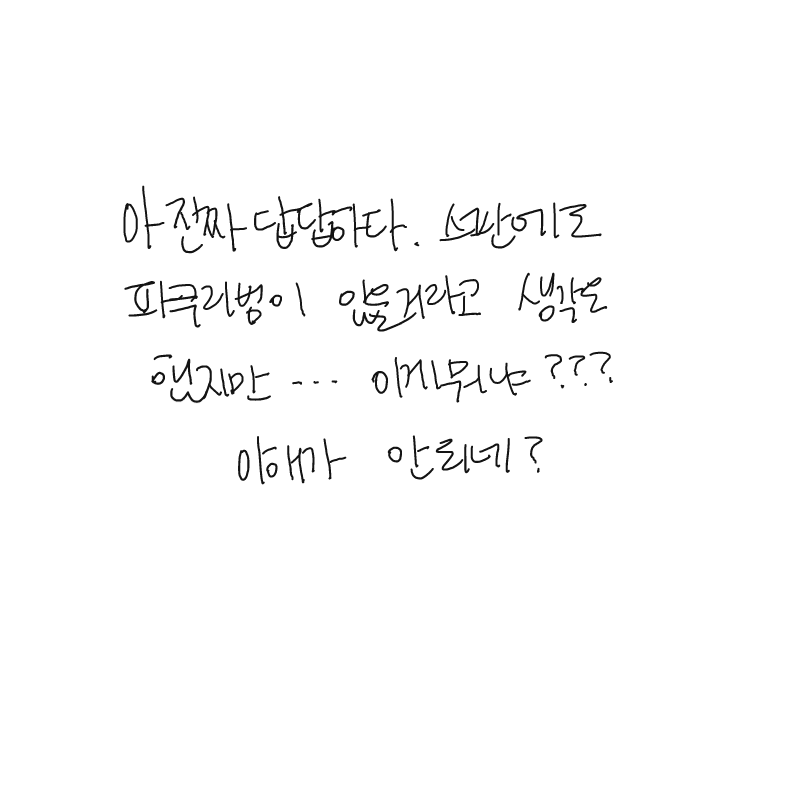 아 진짜 답답하다. 석산에도
파쿠리범이 있을거라고 생각은
했지만 ... 이게뭐냐???
이해가 안되네?